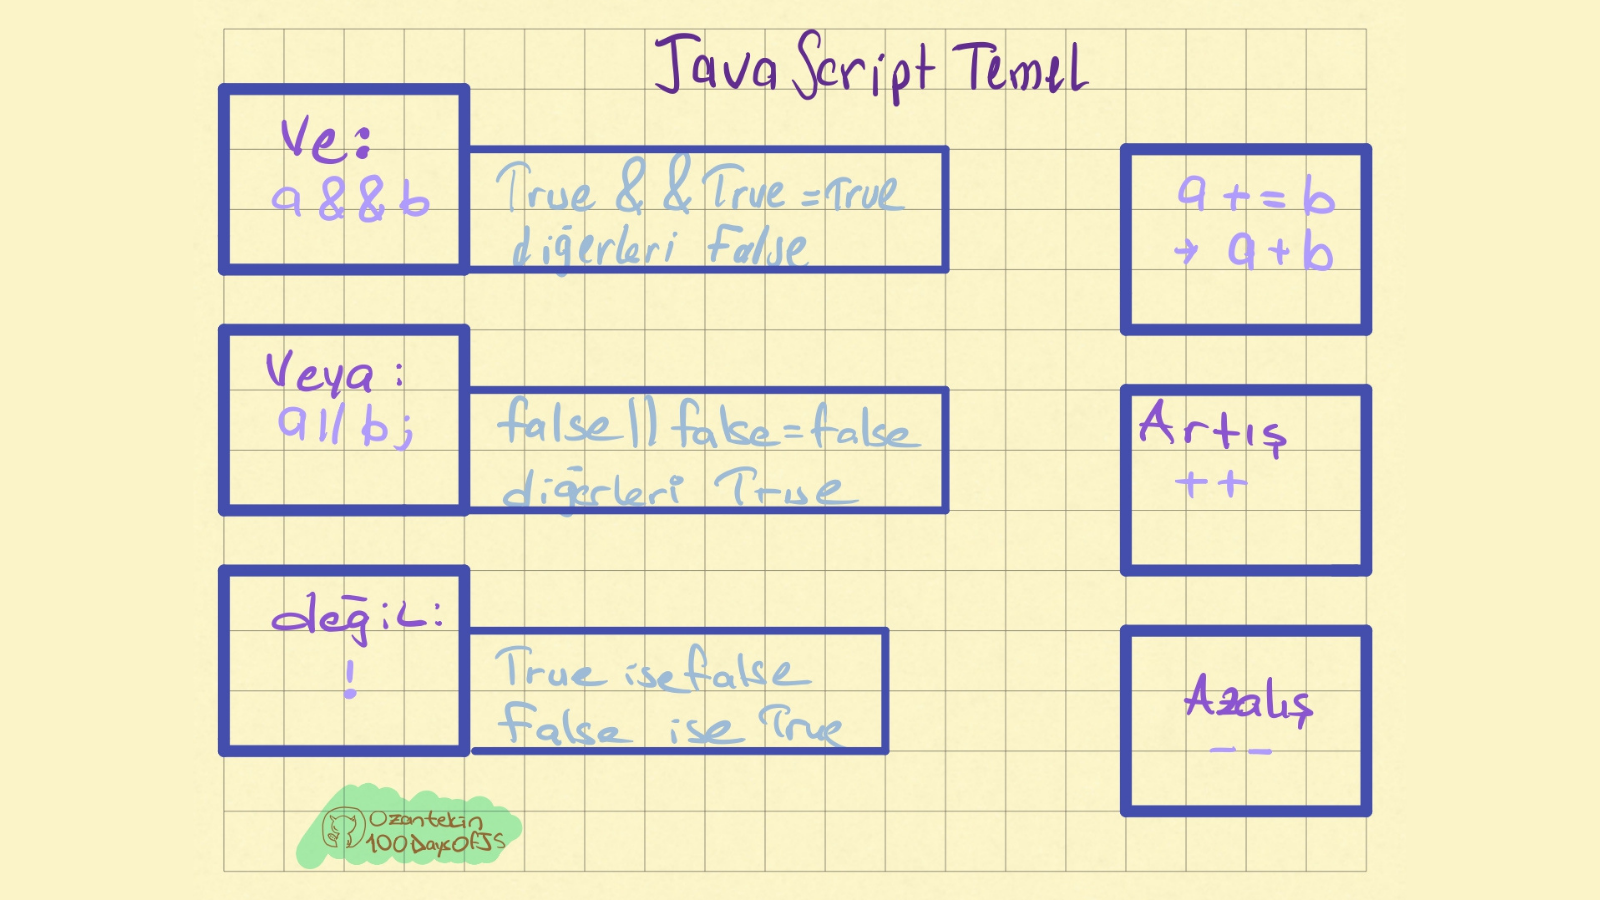 JavaScript Temel
Ve:
a && b
True && True = True
diğerleri False
Veya:
a || b;
false || false = false
diğerleri True
değil:
!
True ise false
False ise True
a += b
→ a + b
Artış
++
Azalış
--
Ozantekin
100DaysOfJS